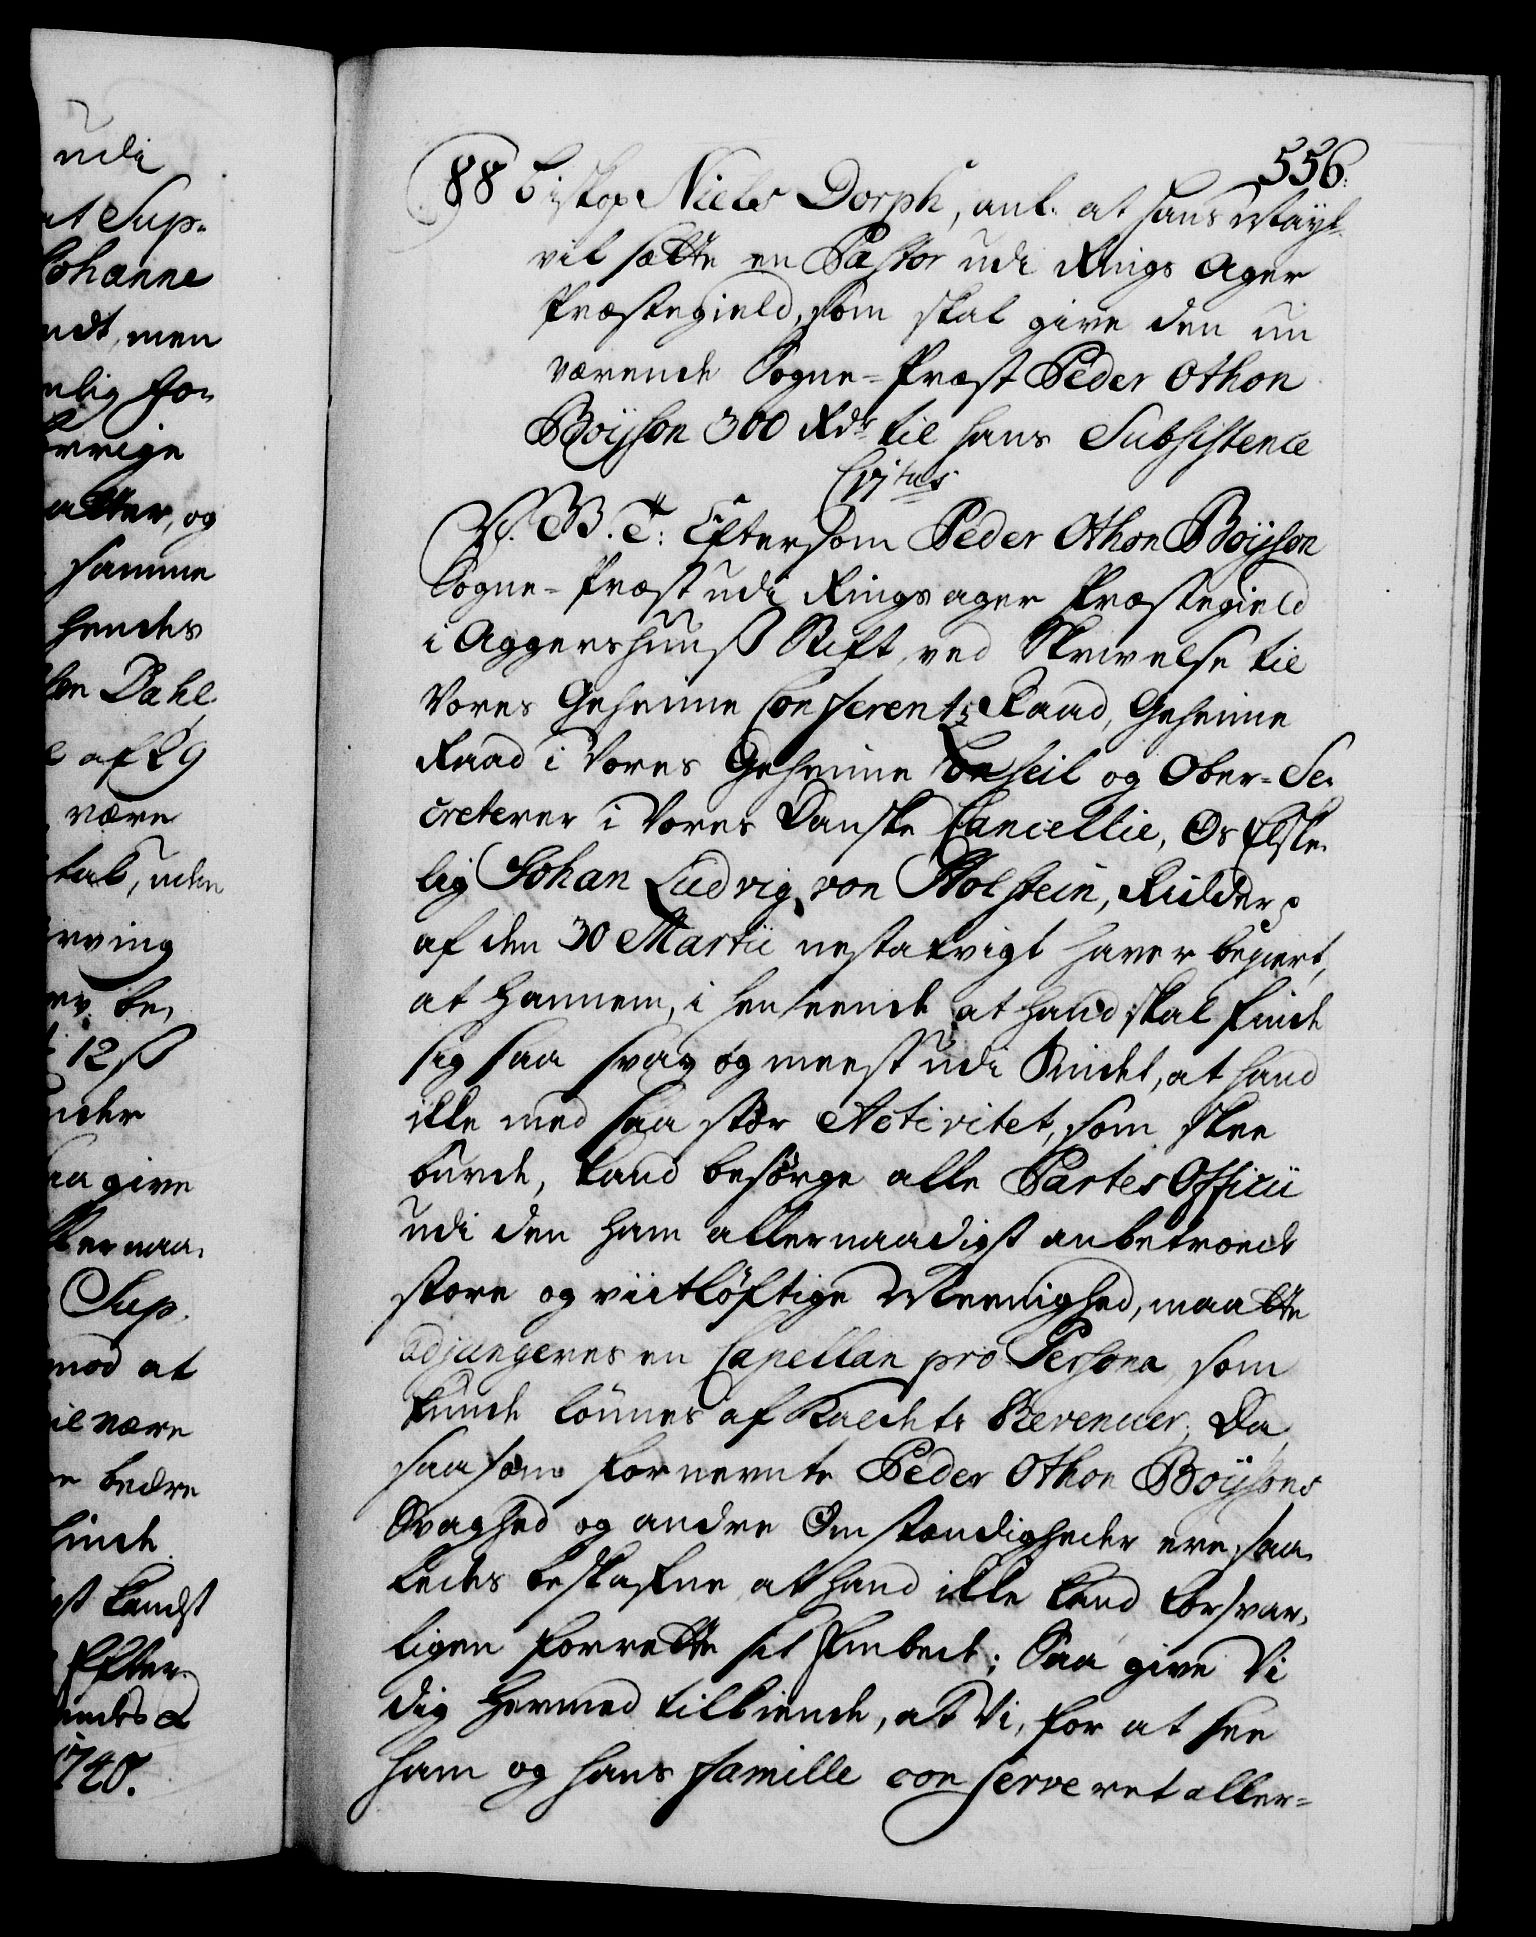 udi
at Sup-
Johanne
ndt, men
nlig for
örrige
atter, og
samme
hendes
sen Dahl
e af 29
være
tal, uden
rving
rev. be,
12 ß
under
aa give
ller naa-
Sup.
mod at
il være
e bedre
finde
gst Kundst
Efter
indes a
1740.
556.
88 Biskop Niels Dorph, anl. at hans Mayt.
vil sætte en Pastor udi Rings Ager
Præstegield, som skal give den nu
værende Sogne-Præst Peder Othon
Boyson 300 Rdr til hans Subsistence
C 6tus
V. G. T. Eftersom Peder Othon Boyson
Sogne-Præst udi Ringsager Præstegield
i Aggershuuß Stift, ved Skrivelse til
Vores Geheime Conferentz Raad, Geheime
Raad i Vores Geheime Conseil og Ober-Se-
creterer i Vores Danske Cancellie, Os Elske-
lig Johan Ludvig von Holstein, Ridder,
af den 30 Martii nestafvigt haver begiert,
at hannem, i henseende at hand skal finde
sig saa svag og meest udi Sindet, at hand
ikke med saa stor Activitet, som skee
burde, kand besörge alle Partes Officii
udi den ham allernaadigst anbetroede
store og viitlöftige Meenighed, maatte
adjungeres en Capellan pro Persona, som
kunde lönnes af Kaldets Revenuer; Da
saasom fornevnte Peder Othon Boysons
Svaghed og andre Omstændigheder ere saa-
ledes beskafne, at hand ikke kand forsvar-
ligen forrette sit Embede; Saa give Vi
dig hermed tilkiende, at Vi, for at see
ham og hans Famille conserveret aller-